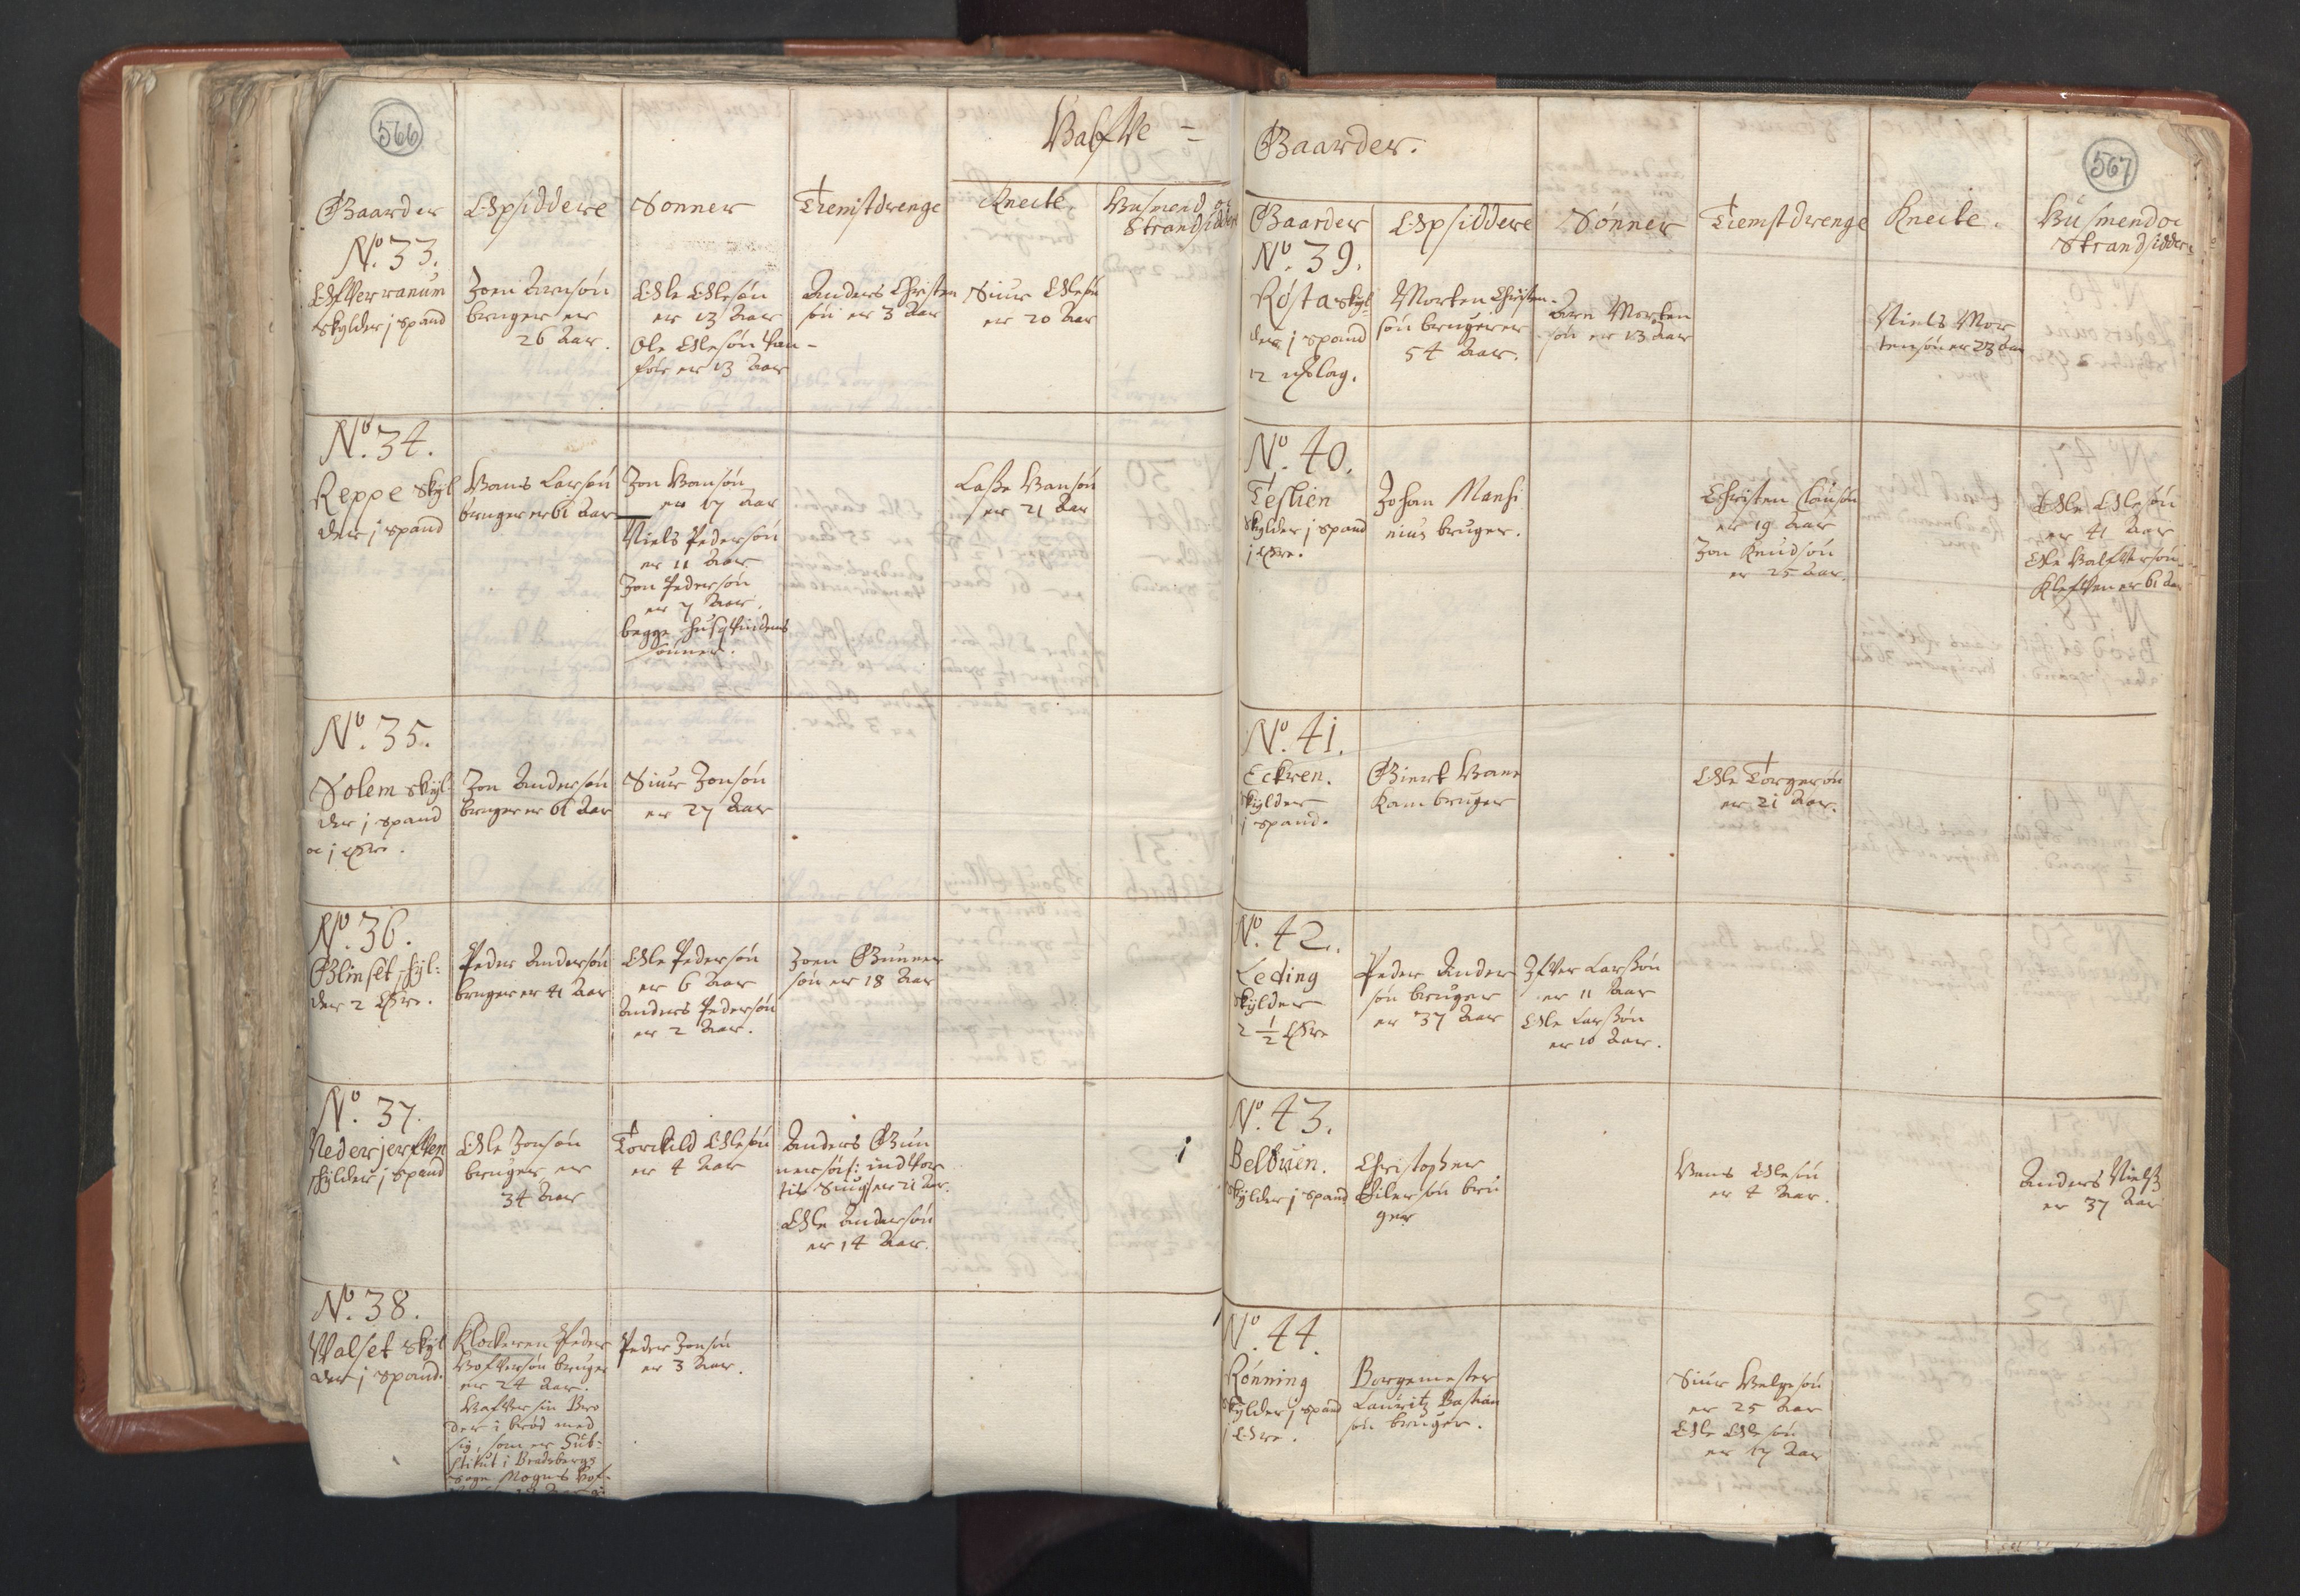 566
Half Ve =
Baarder
Opsiddere
Sønner
Tienistdrenge
Kneite.
Husmend oc
Strandsidder
No. 33.
skylder j spand
Joen Arnsøn
bruger er
26 Aar.
Olle Ollesøn
er 13 Aar
Ole Ollesøn
er 13 Aar
Anders Christen
søn er 3 Aar
Siur Ollesøn
er 20 Aar
No. 34.
Reppe Skyl
der j spand
Hans Larsøn
bruger er 61 Aar
Jon Hansøn
er 17 Aar
Niels Pedersøn
er 11 Aar
Jon Pedersøn
er 7 Aar.
begge husqvindens
sønner.
Lasse Hansøn
er 21 Aar
No. 35.
Solem skyl-
der j spand
oc j Øre.
Jon Andersøn
bruger er 61 Aar
Siur Jonsøn
er 27 Aar
No. 36.
Blinset skyl:
der 2 Øre.
Peder Andersøn
bruger er 41 Aar
Olle Pedersøn
er 6 Aar
Anders Pedersøn
er 2 Aar.
Joen Gunner
søn er 18 Aar
No. 37.
Neder
skylder j spand
Olle Jonsøn
bruger er
34 Aar
Torkild Ollesøn
er 4 Aar
Anders Gun
nersøn: er 21 Aar.
Olle Andersøn
er 14 Aar.
No. 38.
Valset skyl
der j spand.
Klockeren Peder
bruger
er 24 Aar.
Haf Ver sin Bro
der i brød med
sig, som er Sub-
stitut i Bradsbergs
Sogn Mogns
Peder Jonsøn
er 3 Aar.
567
Baarder.
Baarder
Opsiddere
Sønner
Tiemstdrenge
Kneite.
Husmend oc
Strandsidder
No. 39.
Røsta skyl
der j spand
12
Morten Christen-
søn bruger er
54 Aar.
Arn Morten
søn er 13 Aar
Niels Mor
tensøn er 23 Aar
No. 40.
Teslien
skylder j spand
j Øre.
Johan Mansi
nius bruger.
Christen Clausøn
er 19 Aar
Jon Knudsøn
er 25 Aar.
Olle Ollesøn
er 41 Aar
Olle HalfVorsøn
KlefVen er 61 Aar
No. 41.
Eckren.
skylder
j spand.
Giert Hane
Kam bruger
Olle Torgersøn
er 21 Aar.
No. 42.
Leding
skylder
2 1/2 Øre
Peder Ander
søn bruger
er 37 Aar
IfVer Larssøn
er 11 Aar
Olle Larssøn
er 10 Aar.
No. 43.
Belbuen.
skylder j spand
Christopher
Eilersøn bru
ger
Hans Ollesøn
er 4 Aar.
Anders Nielss
er 37 Aar
No. 44.
Rønning
skylder j spand
j Øre.
Borgemester
Lauritz Bastian
søn bruger.
Siur Helgesøn
er 25 Aar
Olle Ollesøn
er 17 Aar